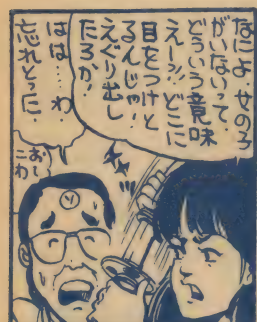 なによ 女の子
がいないって
どういう意味
えーッ!! どこに
目をつけと
るんじゃ!
えぐり出し
たろか!
はは…わ、
忘れとった
お〜
こわ